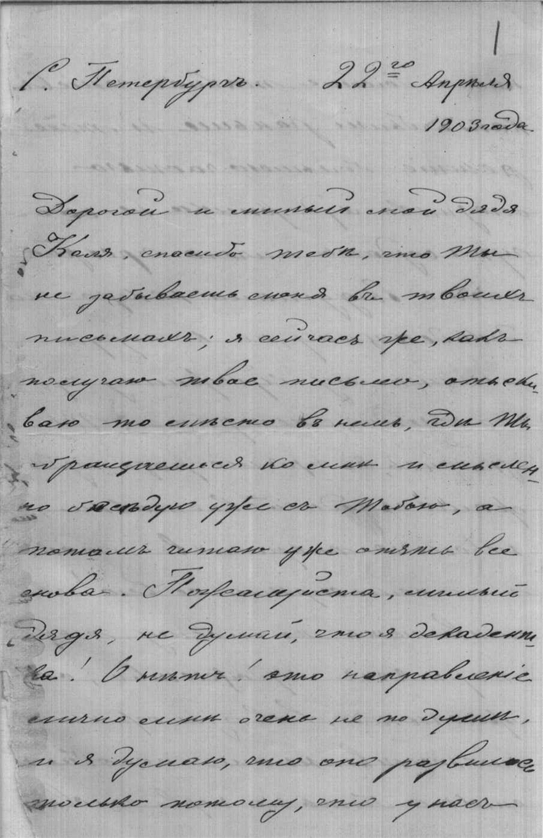 1
С. Петербургъ. 22го Апрѣля
1903 года.
Дорогой и милый мой дядя
Коля, спасибо тебѣ, что Ты
не забываешь меня въ твоихъ
письмахъ; я сейчасъ же, какъ
получаю твое письмо, отыски-
ваю то мѣсто въ немъ, гдѣ Ты
обращаешься ко мнѣ и мыслен-
но бесѣдую уже съ Тобою, а
потомъ читаю уже опять все
снова. Пожалуйста, милый
дядя, не думай, что я декадент-
ка! О нѣтъ! это направленіе
лично мнѣ очень не по душѣ,
и я думаю, что оно развилось
только потому, что у насъ